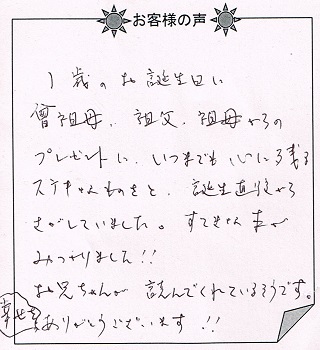 お客様の声
1歳のお誕生日に
曾祖母、祖父、祖母からの
プレゼントに、いつまでも心に残る
ステキなものをと、誕生直後から
さがしていました。すてきな本が
みつかりました!!
お兄ちゃんが読んでくれているそうです。
幸せを
ありがとうございます!!